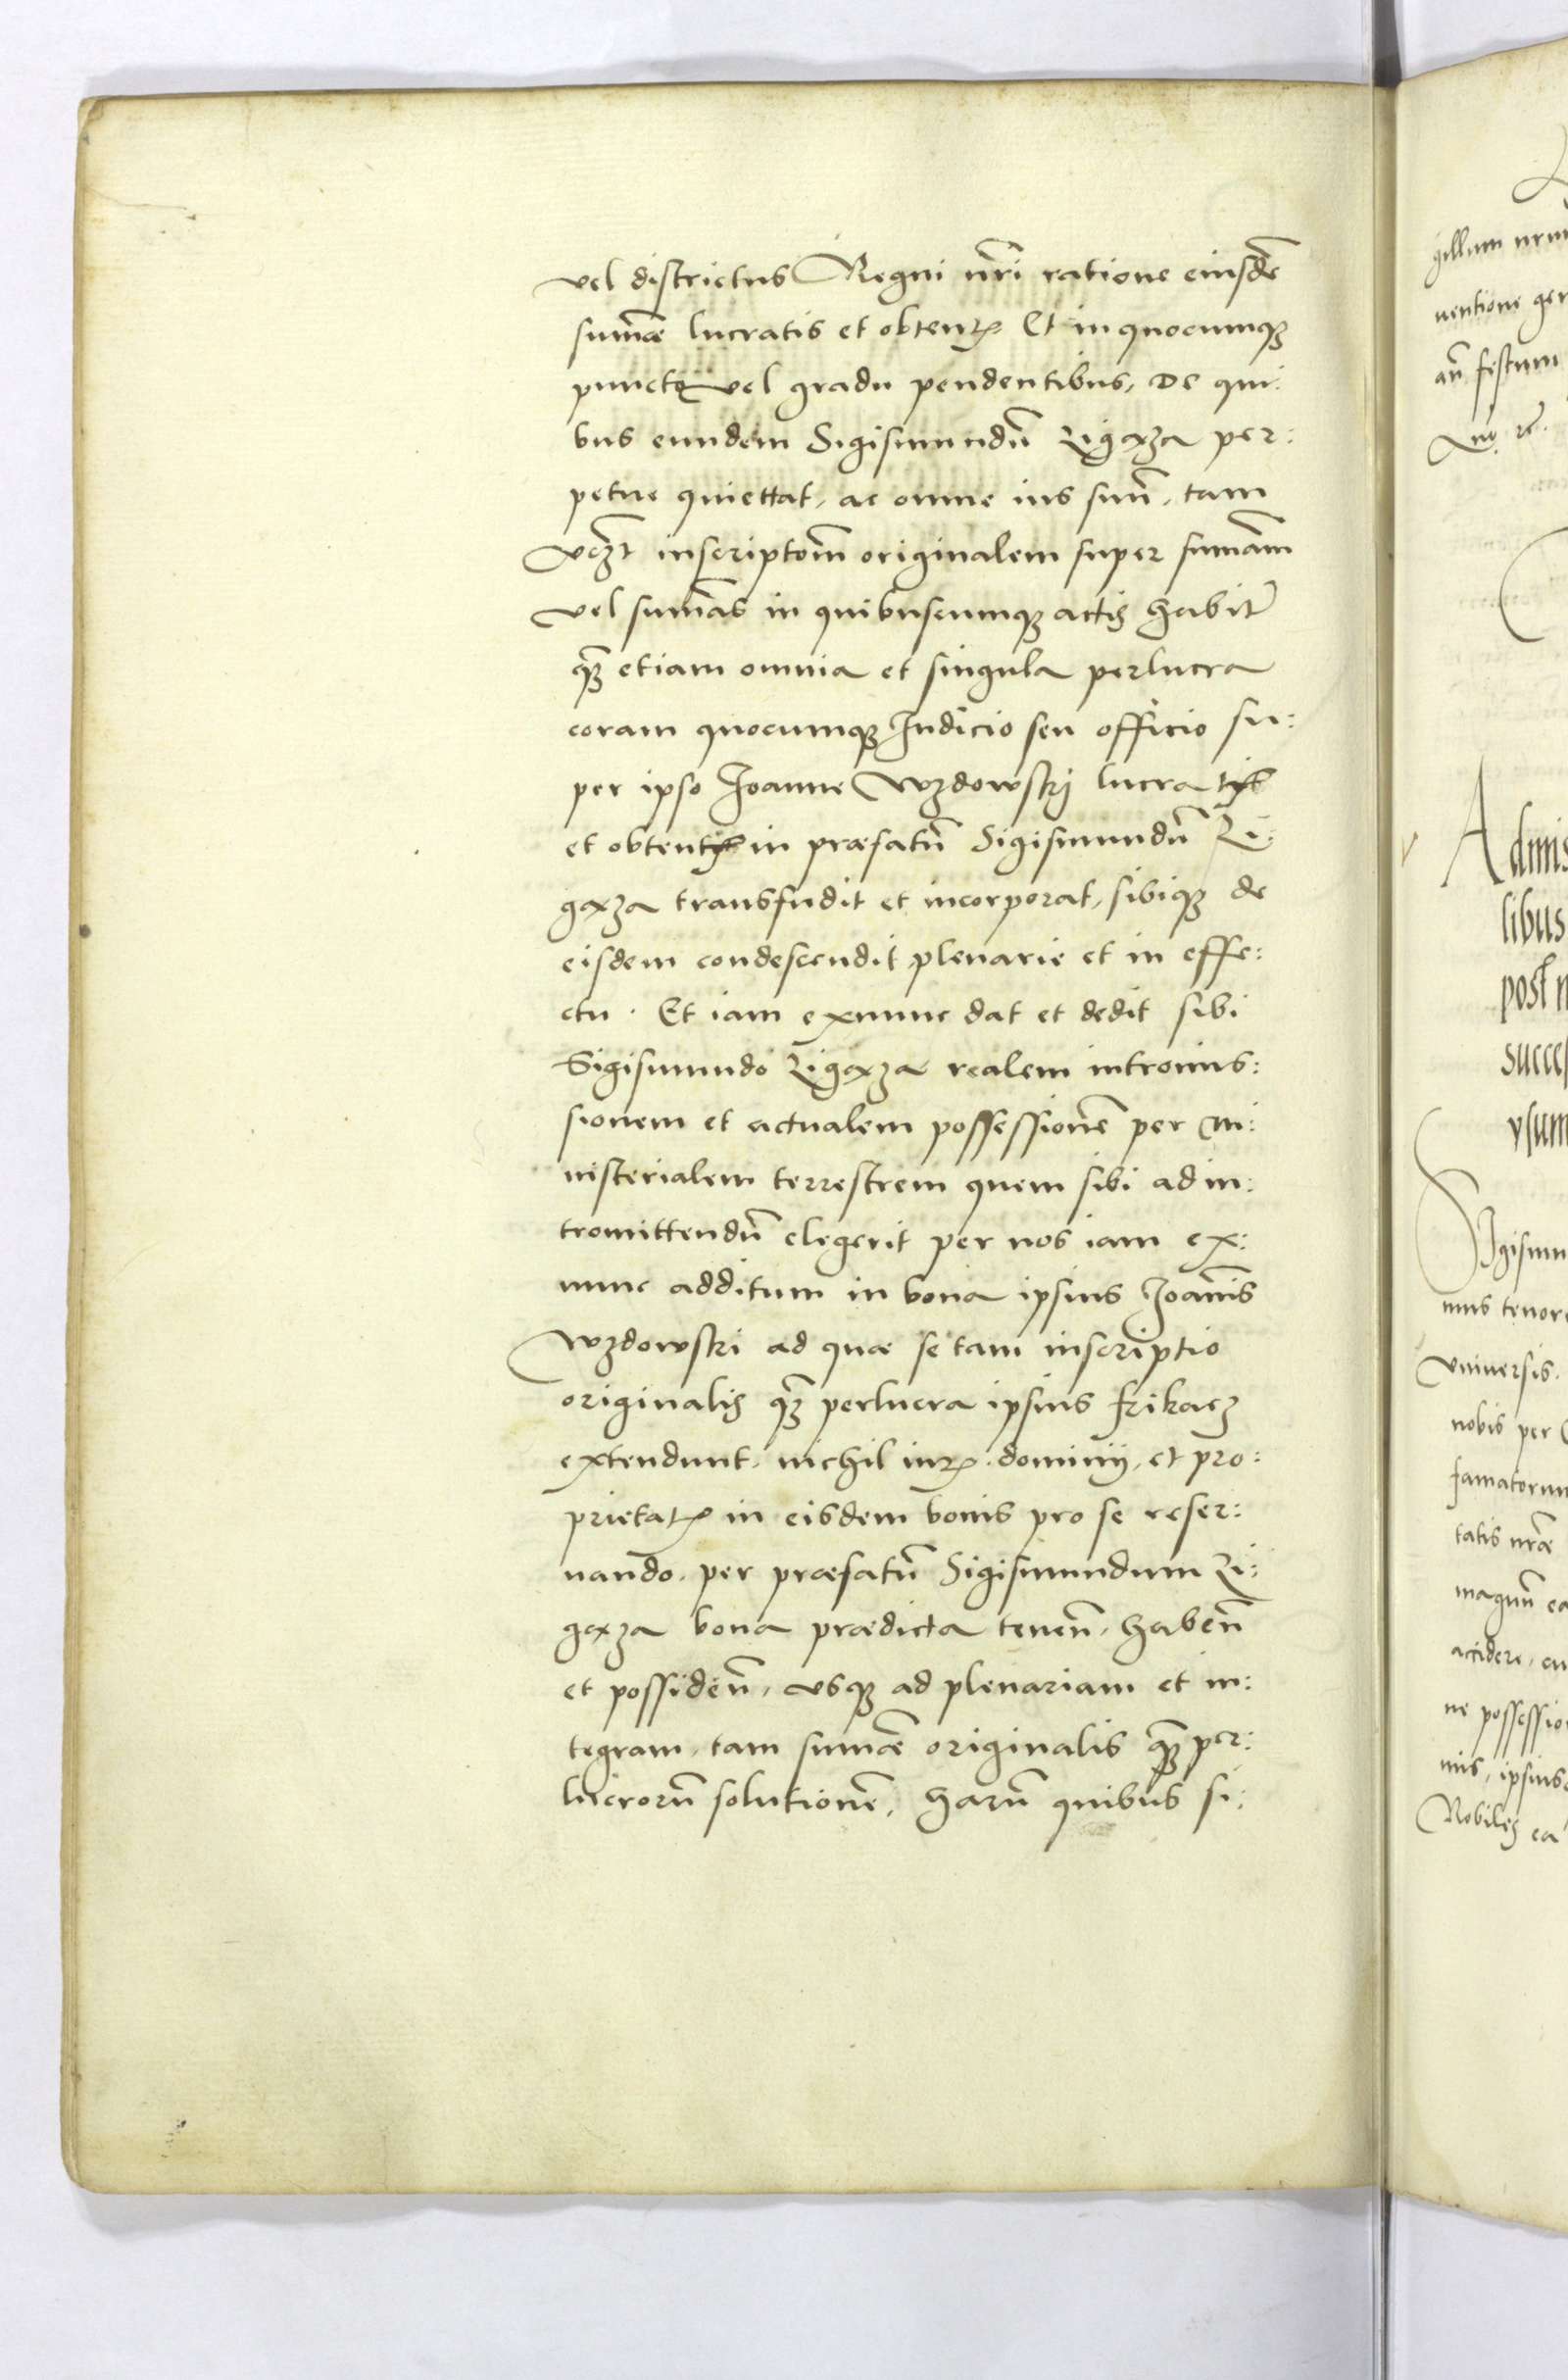 vel districtus Regni nr̃i ratione eiusdẽ
sum̃ae lucratis et obtent. Et in quocumq;
puncto vel gradu pendentibus, De qui:
bus eundem Sigismundũ Ligaza per:
petue quiettat, ac omne ius suũ, tam
vcʒt inscriptoẽm originalem super sum̃am
vel sum̃as in quibuscumq; actis habit
qʒ etiam omnia et singula perlucra
coram quocumq; Iudicio seu officio su:
per ipso Joanne Wzdowskj lucra
et obtent in praefatũ Sigismundũ Li:
gaza transfudit et incorporat, sibiq; de
eisdem condescendit plenarie et in effe:
ctu. Et iam exnunc dat et dedit sibi
Sigismundo Ligaza realem intromis:
sionem et actualem possessionẽ per mi:
nisterialem terrestrem quem sibi ad in:
tromittendũ elegerit per nos iam ex:
nunc additum in bona ipsius Joañis
Wzdowski ad quae se tam inscriptio
originalis qʒ perlucra ipsius frikacz
extendunt, nichil iur. dominij, et pro:
prietat. in eisdem bonis pro se reser:
uando, per praefatũ Sigismundum Li:
gaza bona praedicta teneñ, habeñ
et possideñ, usq; ad plenariam et in:
tegram, tam sum̃ae originalis qʒ per:
lucrorũ solutionẽ, harũ quibus si:
gillum nrm
uentione ger
añ festum
Admis
libus
post n
succes
vsum
Sigismu
mus tenore
vniuersis.
nobis per
famatorum
tatis nr̃ae
magnũ ca
accidere, cu
ne possessio
mis, ipsius
Nobiles ca